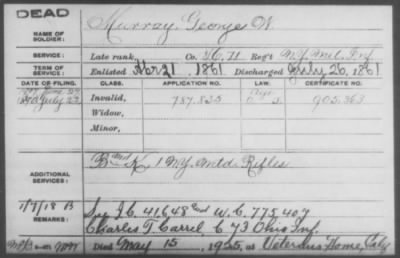 DEAD
NAME OF SOLDIER: Murray, George W.
SERVICE: Late rank, Co. H. 71 Reg't N.Y. Mil. Inf
TERM OF SERVICE: Enlisted Apr 21, 1861. Discharged July 26, 1861
DATE OF FILING. CLASS. APPLICATION NO. CERTIFICATE NO.
July 23 Invalid, 787.835 905.363
Widow,
Minor,
ADDITIONAL SERVICES: K 1 N.Y. Mtd. Rifles
1/7/18 B
REMARKS: See I.C. 41648 W.C. 775407
Charles T. Carrel C 73 Ohio Inf.
Died May 15, 1925, at Veterans Home, Caly